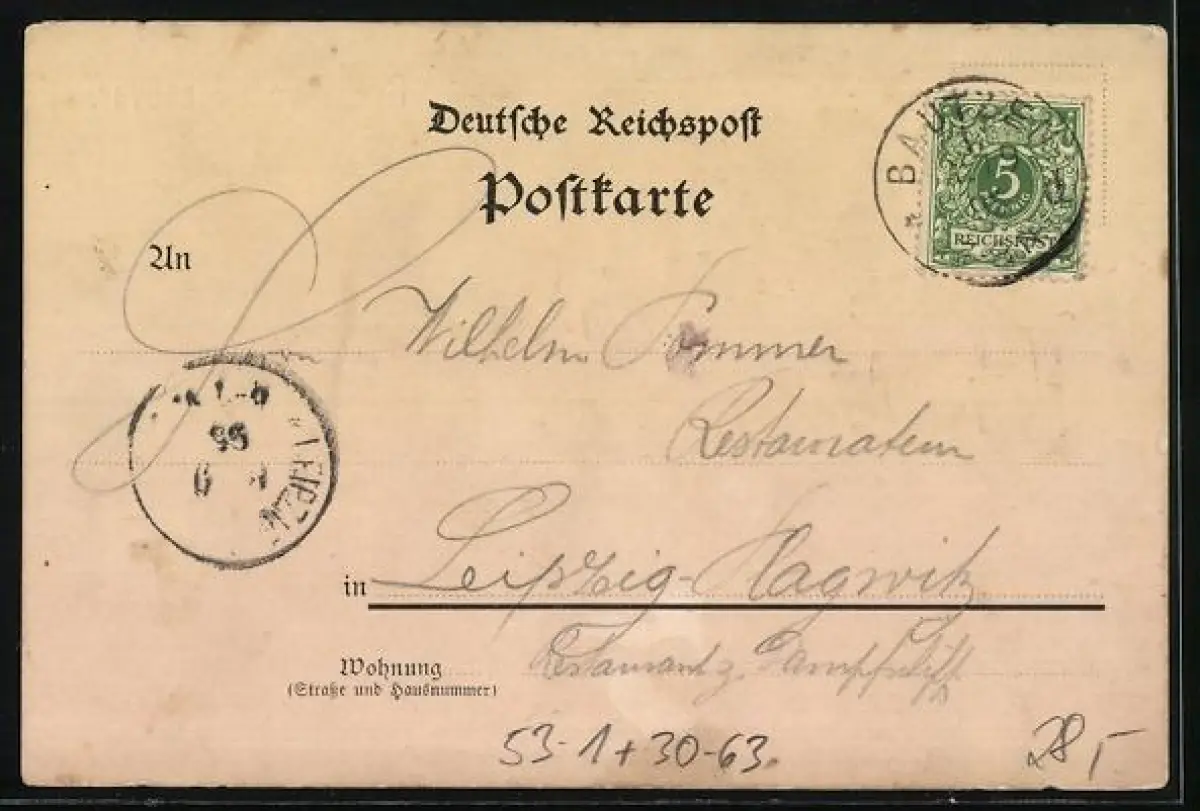 Deutsche Reichspost
Postkarte
BAUTZEN
5
REICHSPOST
An
Wilhelm Sommer
Restaurateur
LEIPZIG
95
in Leipzig-Plagwitz
Wohnung Restaurant z. Dampfschiff
(Straße und Hausnummer)
53-1+30-63.
28,-